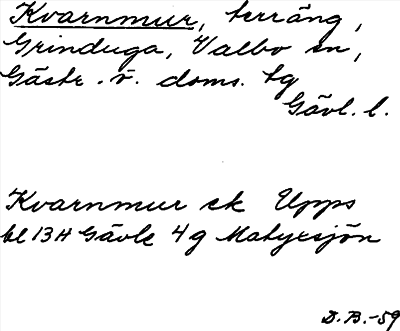 Kvarnmur, terräng,
Grinduga, Valbo sn,
Gästr. v. doms. tg
Gävl. l.
Kvarnmur ek Upps
bl 13H Gävle 4g Matyxsjön
D. B.-59